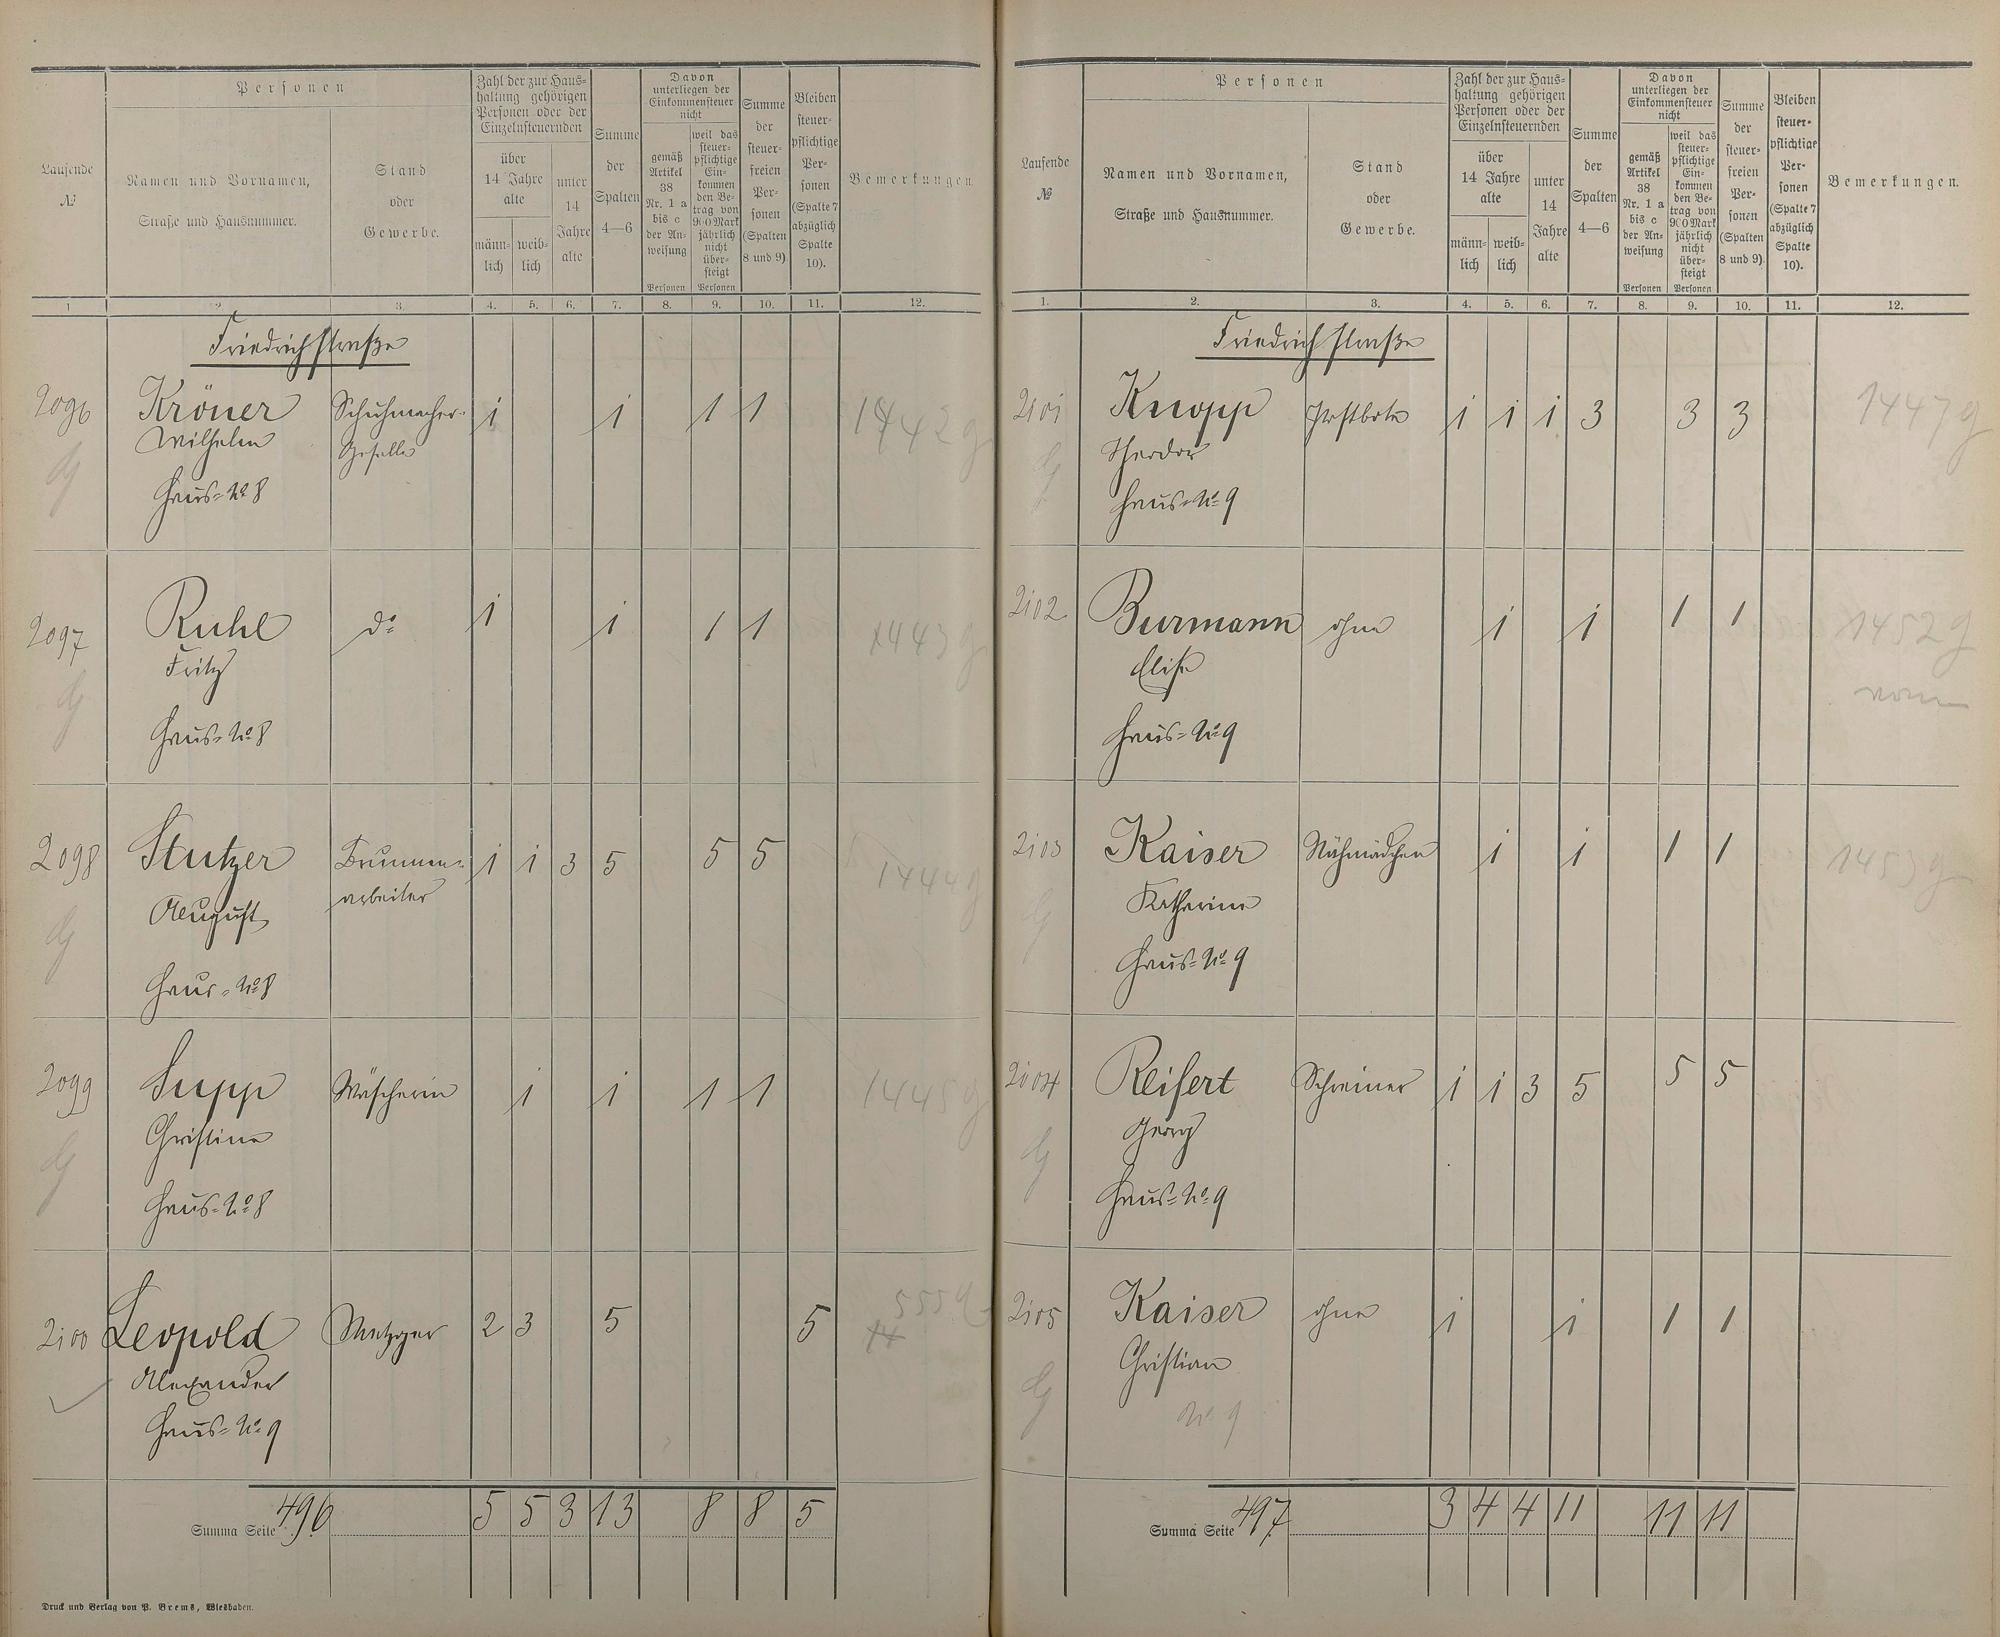 Laufende
№
Personen
Namen und Vornamen,
Straße und Hausnummer.
Stand
oder
Gewerbe.
Zahl der zur Haus-
haltung gehörigen
Personen oder der
Einzelnsteuernden
über
14 Jahre
alte
männ-
lich
weib-
lich
unter
14
Jahre
alte
Summe
der
Spalten
4—6
Davon
unterliegen der
Einkommensteuer
nicht
gemäß
Artikel
38
Nr. 1 a
bis c
der An-
weisung
Personen
weil das
steuer-
pflichtige
Ein-
kommen
den Be-
trag von
900 Mark
jährlich
nicht
über-
steigt
Personen
Summe
der
steuer-
freien
Per-
sonen
(Spalten
8 und 9)
Bleiben
steuer-
pflichtige
Per-
sonen
(Spalte 7
abzüglich
Spalte
10).
Bemerkungen.
1 2 3. 4. 5. 6. 7. 8. 9. 10. 11. 12.
Friedrichstraße
2096 Kröner Schuhmacher- 1 1 1 1 1442 g
Wilhelm Geselle
Haus-No 8
2097 Ruhl do 1 1 1 1 1443 g
Fritz
Haus-No 8
2098 Stutzer Brunnen- 1 1 3 5 5 5 1444 g
August arbeiter
Haus-No 8
2099 Supp Wäscherin 1 1 1 1 1445 g
Christine
Haus-No 8
2100 Leopold Metzger 2 3 5 5
Alexander
Haus-No 9
Summa Seite 496 5 5 3 13 8 8 5
Druck und Verlag von P. Brems, Wiesbaden.
Laufende
№
Personen
Namen und Vornamen,
Straße und Hausnummer.
Stand
oder
Gewerbe.
Zahl der zur Haus-
haltung gehörigen
Personen oder der
Einzelnsteuernden
über
14 Jahre
alte
männ-
lich
weib-
lich
unter
14
Jahre
alte
Summe
der
Spalten
4—6
Davon
unterliegen der
Einkommensteuer
nicht
gemäß
Artikel
38
Nr. 1 a
bis c
der An-
weisung
Personen
weil das
steuer-
pflichtige
Ein-
kommen
den Be-
trag von
900 Mark
jährlich
nicht
über-
steigt
Personen
Summe
der
steuer-
freien
Per-
sonen
(Spalten
8 und 9)
Bleiben
steuer-
pflichtige
Per-
sonen
(Spalte 7
abzüglich
Spalte
10).
Bemerkungen.
1. 2. 3. 4. 5. 6. 7. 8. 9. 10. 11. 12.
Friedrichstraße
2101 Knopp Postbote 1 1 1 3 3 3 1447 g
Theodor
Haus-No 9
2102 Burmann ohne 1 1 1 1 1452 g
Elise
Haus-No 9
2103 Kaiser Nähmädchen 1 1 1 1 1453 g
Katharine
Haus-No 9
2104 Reifert Schreiner 1 1 3 5 5 5
Georg
Haus-No 9
2105 Kaiser ohne 1 1 1 1
Christian
No 9
Summa Seite 497 3 4 4 11 11 11